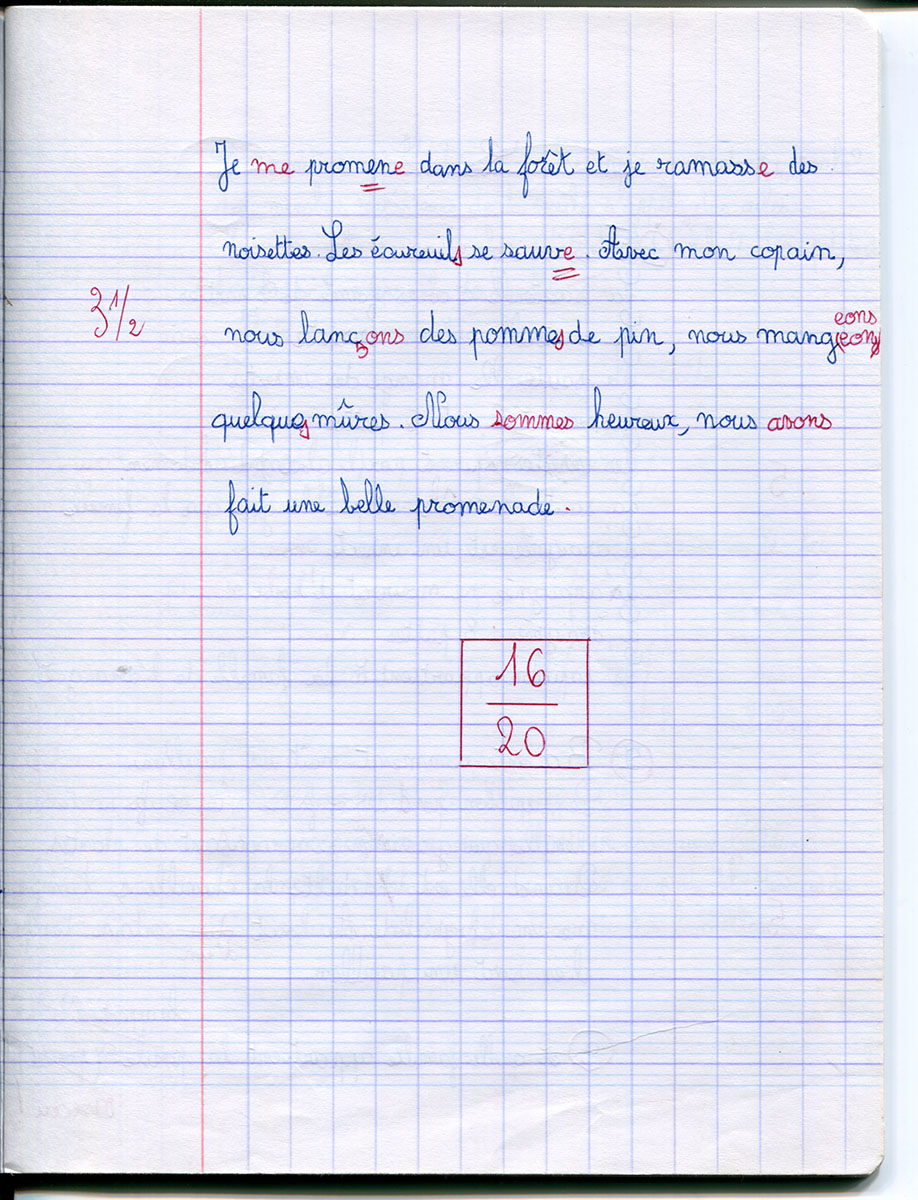 Je me promene dans la forêt et je ramasse des
noisettes. Les écureuils se sauve. Avec mon copain,
eons
3 1/2 nous lançons des pommes de pin, nous mangeons
quelques mûres. Nous sommes heureux, nous avons
fait une belle promenade.
16
20